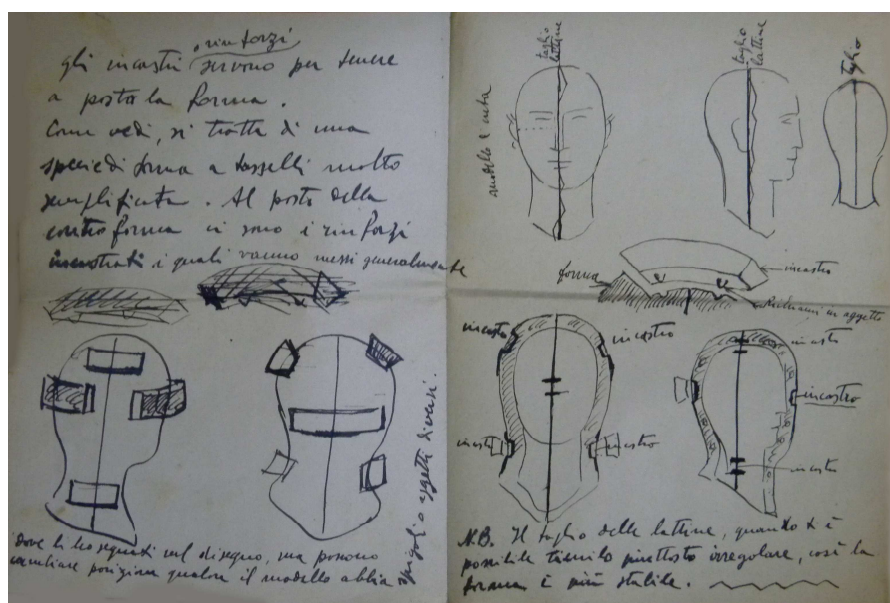 rinforzi
gli incastri servono per tenere
a posto la forma.
Come vedi, si tratta di una
specie di forma a tasselli molto
semplificata. Al posto della
controforma ci sono i rinforzi
incastrati i quali vanno messi generalmente
dove li ho segnati sul disegno, ma possono
cambiare posizione qualora il modello abbia
spigoli o oggetti diversi.
taglio
lattine
taglio
lattine
taglio
modello
forma
incastro
in oggetto
incastro
incastro
incastro
incastro
incastro
incastro
incastro
N.B. Il taglio delle lattine, quando è
possibile tienilo piuttosto irregolare, così la
forma è più stabile.